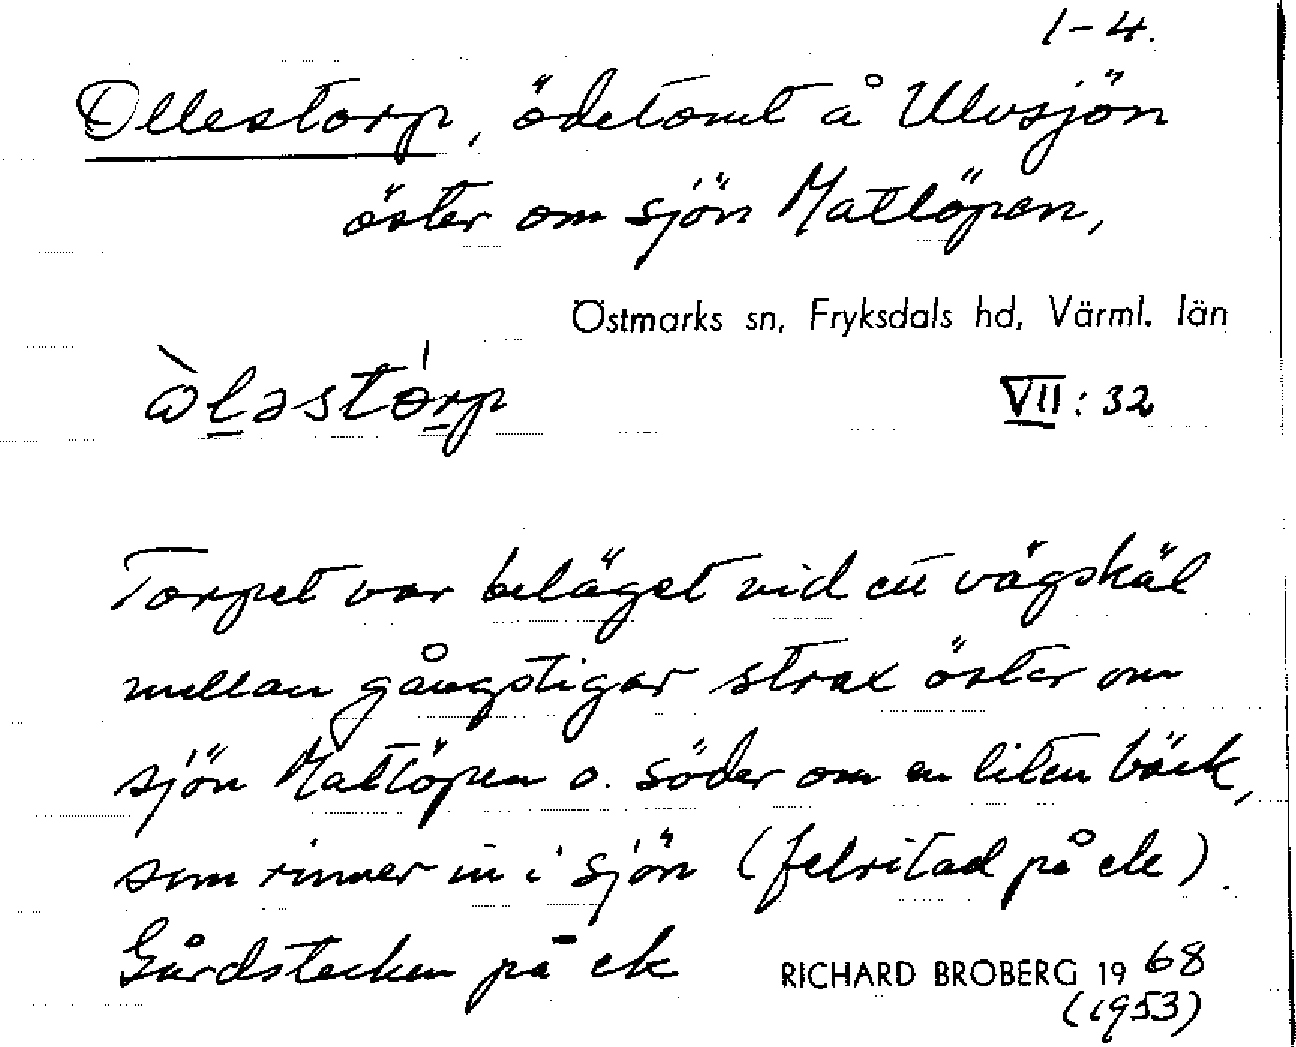 1-4.
Ollestorp, ödetomt å Ulvsjön
öster om sjön Matlöpen,
Östmarks sn, Fryksdals hd, Värml. län
ὼl̠əstórp
VII: 32
Torpet var beläget vid ett vägskäl
mellan gångstigar strax öster om
sjön Matlöpen o. söder om en liten bäck,
som rinner in i sjön (felritad på ek).
Gårdstecken på ek
RICHARD BROBERG 1968
(1953)